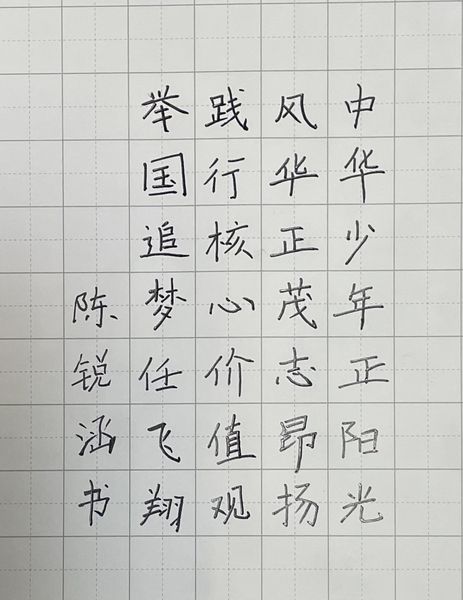 中华少年正阳光
风华正茂志昂扬
践行核心价值观
举国追梦任飞翔
陈锐涵书